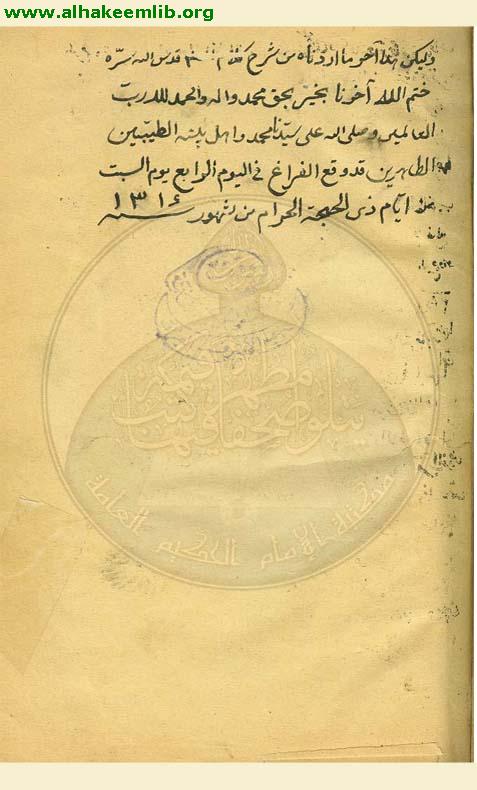 www.alhakeemlib.org
وليكن هذا آخر ما اردناه من شرح كلام قدس الله سره
ختم الله آخرنا بخير بحق محمد واله والحمد لله رب
العالمين وصلى الله على سيدنا محمد واهل بيته الطيبين
الطاهرين قد وقع الفراغ في اليوم الرابع يوم السبت
من ايام ذى الحجة الحرام من شهور سنه ١٣١٤
يتلو صحفا مطهرة فيها كتب قيمة
مكتبة الامام الحكيم العامة